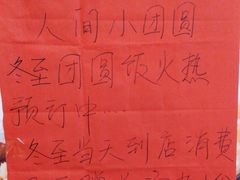 人间小团圆
冬至团圆饭火热
预订中...
冬至当天到店消费